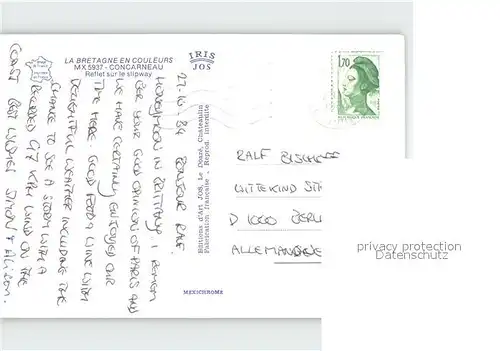 LA BRETAGNE EN COULEURS
MX 5937 - CONCARNEAU
Reflet sur le slipway
IRIS
JOS
1,70
22.10.84 BONJOUR RALF.
HONEYMOON IN BRITTANY. I REMEM
BER YOUR GOOD OPINION OF PARIS AND
WE HAVE CERTAINLY ENJOYED OUR
TIME HERE. GOOD FOOD & WINE WITH
DELIGHTFUL WEATHER INCLUDING THE
CHANCE TO SEE A STORM WITH A
RECORDED 147 KPH WIND ON THE
COAST. BEST WISHES SIMON & ALISON.
Editions d'art JOS, Le Doaré, Châteaulin
Fabrication française - Reprod. interdite
RALF
WITTEKIND
D 1000
ALLEMANGNE
MEXICHROME
privacy protection
Datenschutz